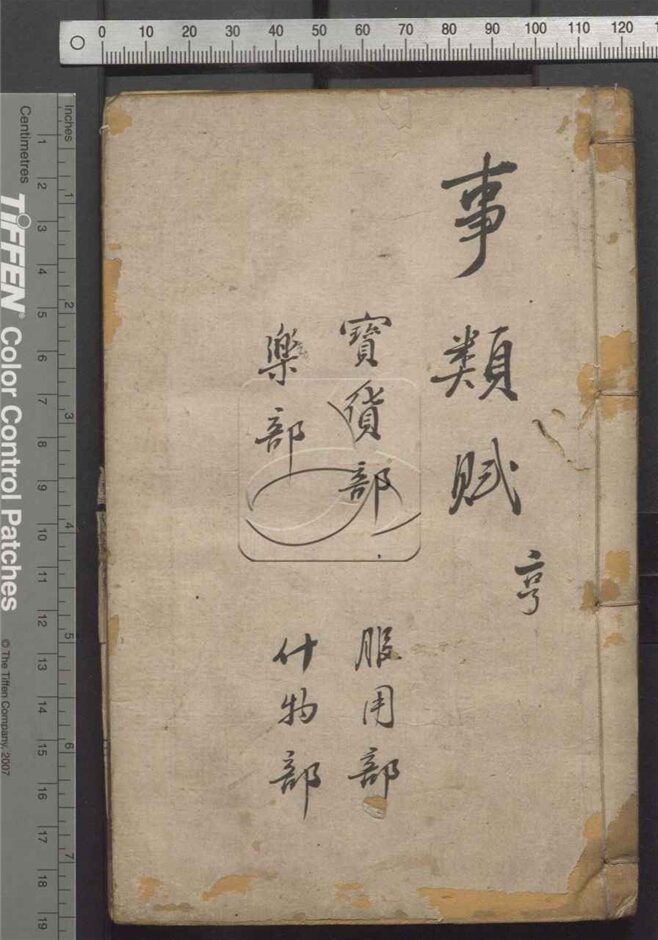 0 10 20 30 40 50 60 70 80 90 100 110 120
事類賦 亨
寶貨部 服用部
樂部 什物部
Inches
1 2 3 4 5 6 7
Centimetres
1 2 3 4 5 6 7 8 9 10 11 12 13 14 15 16 17 18 19
TIFFEN® Color Control Patches
© The Tiffen Company, 2007